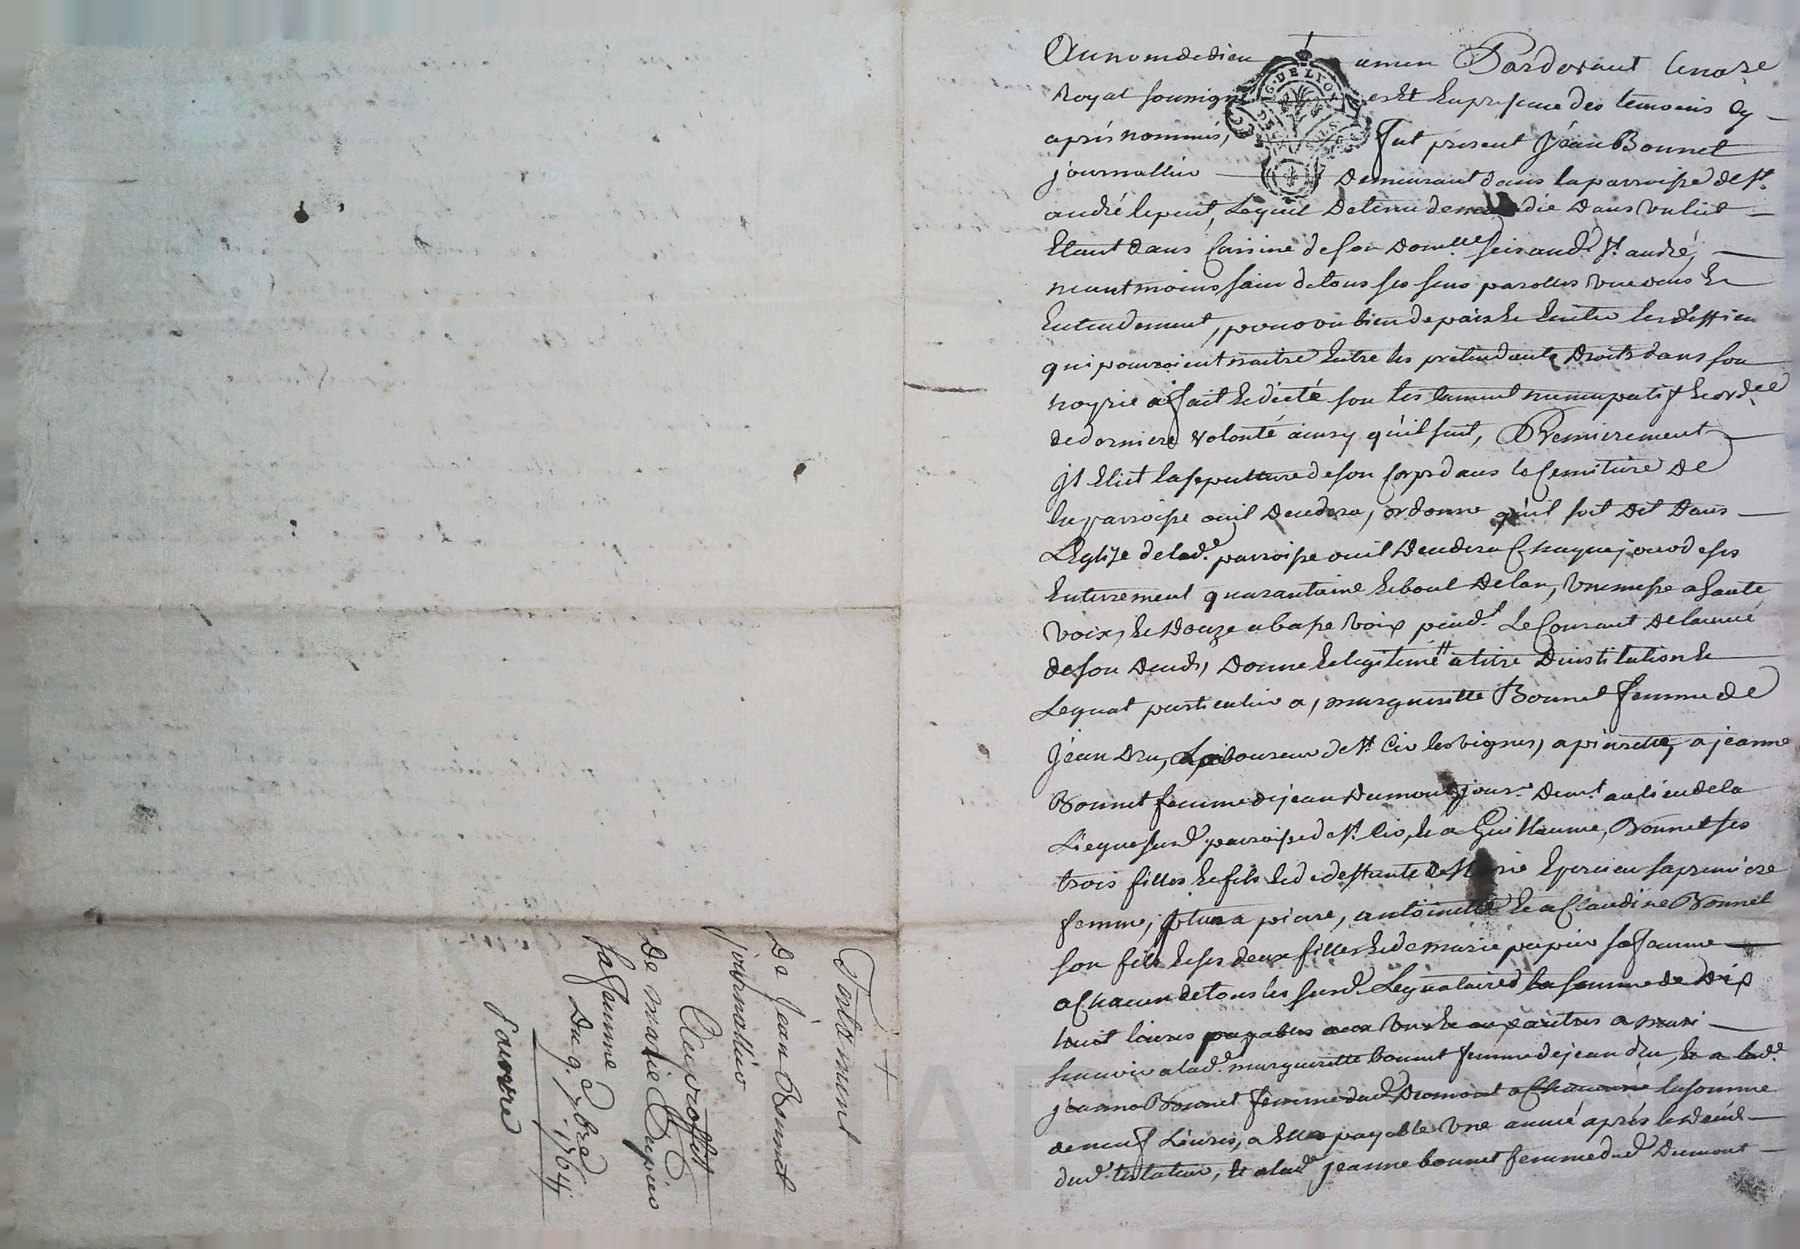 Au nom de dieu amen Pardevant le no.re
Royal soussigné es Et En presence des temoins cy
après nommés, fut present Jéan Bonnet
journallier Demeurant dans la parroisse de St.
andré le puit, Lequel Detenu de maladie Dans un lict
Etant dans Cuisine de son domlle. sis aud. St. andré,
neantmoins sain de tous ses sens parolles Et
Entendement, pour ou bien de paix Et Eviter les
qui pouroient naitre Entre les pretendants Droits dans son
hoyrie a fait Et dicté son testament nuncupatif Et ord.ce
de derniere volonté ainsy qu'il suit, Premierement
Jl Elict la sepulture de son Corps dans le Cemitiere De
la parroisse ou il Decedera, ordonne qu'il soit Dit Dans
L'Eglise de lad.e parroisse ou il Decedera Chaque jour de ses
Enterrement quarantaine Et bout De lan, une messe a haute
voix, Et Douze a basse voix pend.t Le Courant De lanné
de son Deceds, Donne Et legitime a titre D'institution Et
Leguat particulier a, margueritte Bonnet femme de
Jéan Dru, Laboureur de St. Cir les vignes, a pierrette, a jeanne
Bonnet femme de jean Dumont jour. Dem.t au lieu de la
Liegue sus.d parroisse de St. Cir, Et a Guillaume, Bonnet ses
trois filles Et fils Et de deffunte De Marie Epercieu sa premiere
femme, plus a piere, antoinette Et a Claudine Bonnet
son fils Et ses deux filles Et de marie pupier sa femme
a Chacun de tous les susd. Leguataires la somme de Dix
huit livres payables aux uns Et aux autres a
scavoir a lad.e margueritte bonnet femme de jean dru, Et a lad.e
jeanne Bonnet femme dud. Dumont a Chacunne la somme
de neuf Livres, a Elles payable une anneé aprés le deced
dud. testateur, Et a lad.e jeanne bonnet femme dud. Dumont
Testament
De Jean Bonnet
journallier
Au proffit
De marie Pupier
sa femme
Du 9.e 7bre 1764
pauvre